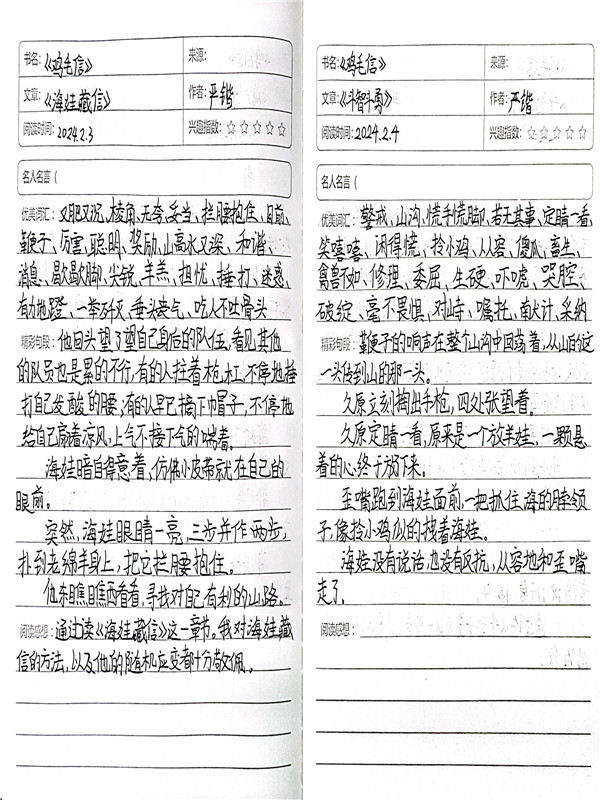 书名：《鸡毛信》
来源：
文章：《海娃藏信》
作者：严锴
阅读时间：2024.2.3
兴趣指数：☆☆☆☆☆
名人名言（
优美词汇：又肥又沉、棱角、无奈、妥当、拦腰抱住、目前、
鞭子、厉害、聪明、奖励、山高水又深、和谐、
消息、歇歇脚、尖锐、羊羔、担忧、捶打、迷惑、
有力地蹬、一举歼灭、垂头丧气、吃人不吐骨头
精彩句段：他回头望了望自己身后的队伍，看见其他
的队员也是累的不行，有的人拉着枪杠不停地捶
打自己发酸的腰；有的人早已摘下巾冒子，不停地
给自己扇着凉风，上气不接下气的喘着。
海娃暗自得意着，仿佛小皮带就在自己的
眼前。
突然，海娃眼睛一亮，三步并作两步，
扑到老绵羊身上，把它拦腰抱住。
他东瞧瞧西看看，寻找对自己有利的山路。
阅读感想：通过读《海娃藏信》这一章节。我对海娃藏
信的方法，以及他的随机应变都十分敬佩。
书名：《鸡毛信》
来源：
文章：《斗智斗勇》
作者：严锴
阅读时间：2024.2.4
兴趣指数：☆☆☆☆☆
名人名言（
优美词汇：警戒、山沟、慌手慌脚、若无其事、定睛一看、
笑嘻嘻、闲得慌、拎小鸡、从容、傻瓜、畜生、
禽兽不如、修理、委屈、生硬、吓唬、哭腔、
破绽、毫不畏惧、对峙、嘱托、献计、采纳
精彩句段：鞭子的响声在整个山沟中回荡着，从山的这
一头传到山的那一头。
久原立刻掏出手枪，四处张望着。
久原定睛一看，原来是一个放羊娃，一颗悬
着的心终于放下来。
歪嘴跑到海娃面前，一把抓住海的脖领
子，像拎小鸡似的拽着海娃。
海娃没有说话，也没有反抗，从容地和歪嘴
走了。
阅读感想：